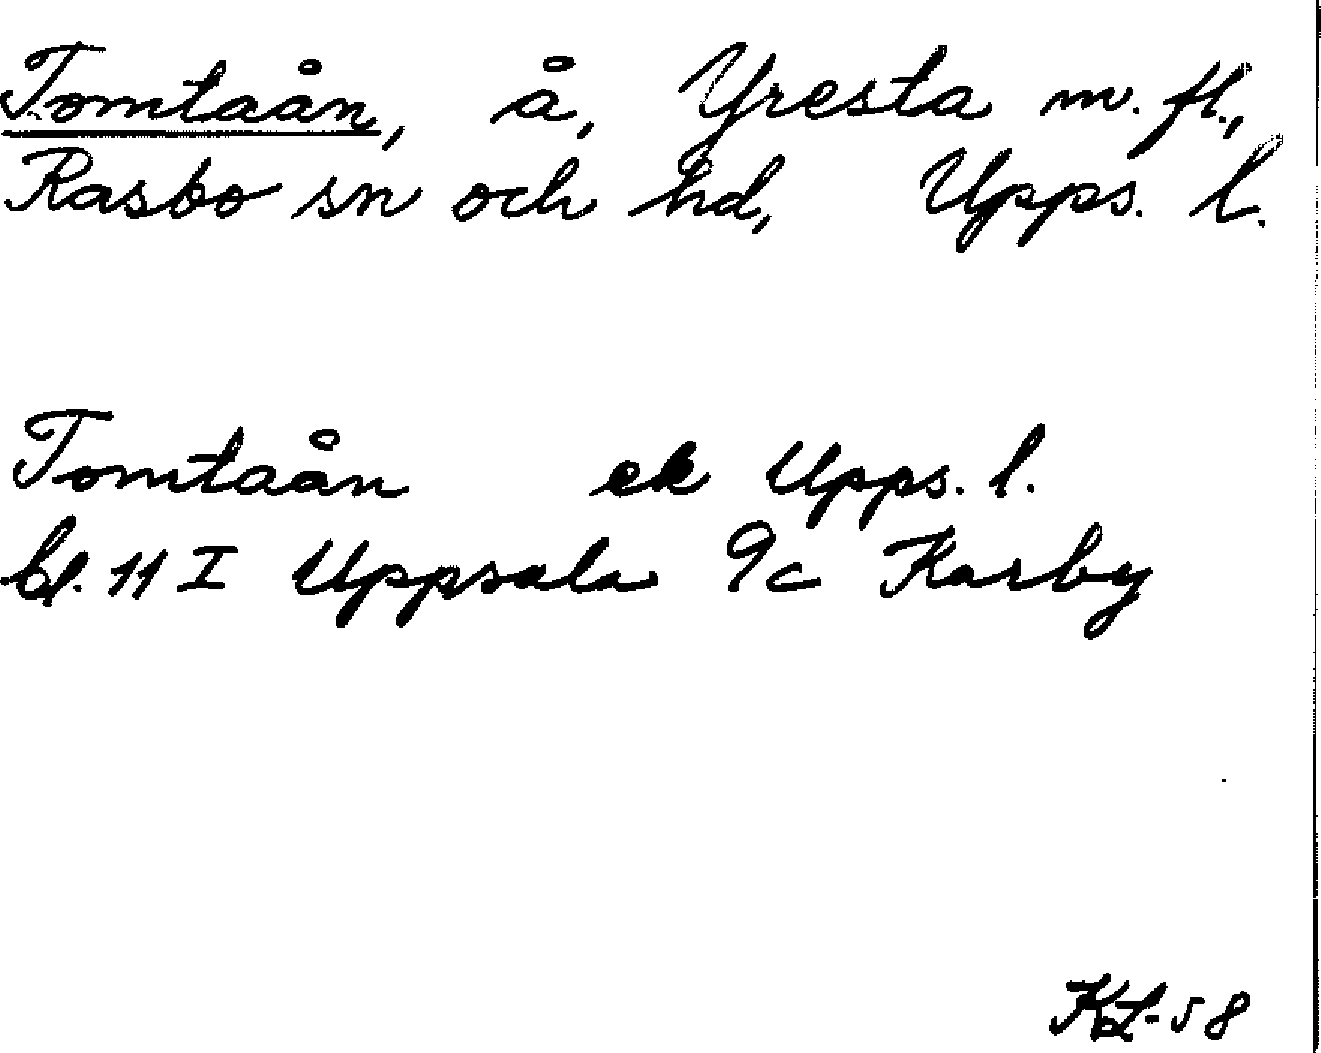 Tomtaån, å, Yresta m. fl.,
Rasbo sn och hd, Upps. l.
Tomtaån ek Upps. l.
bl. 11 I Uppsala 9c Karby
KL-58